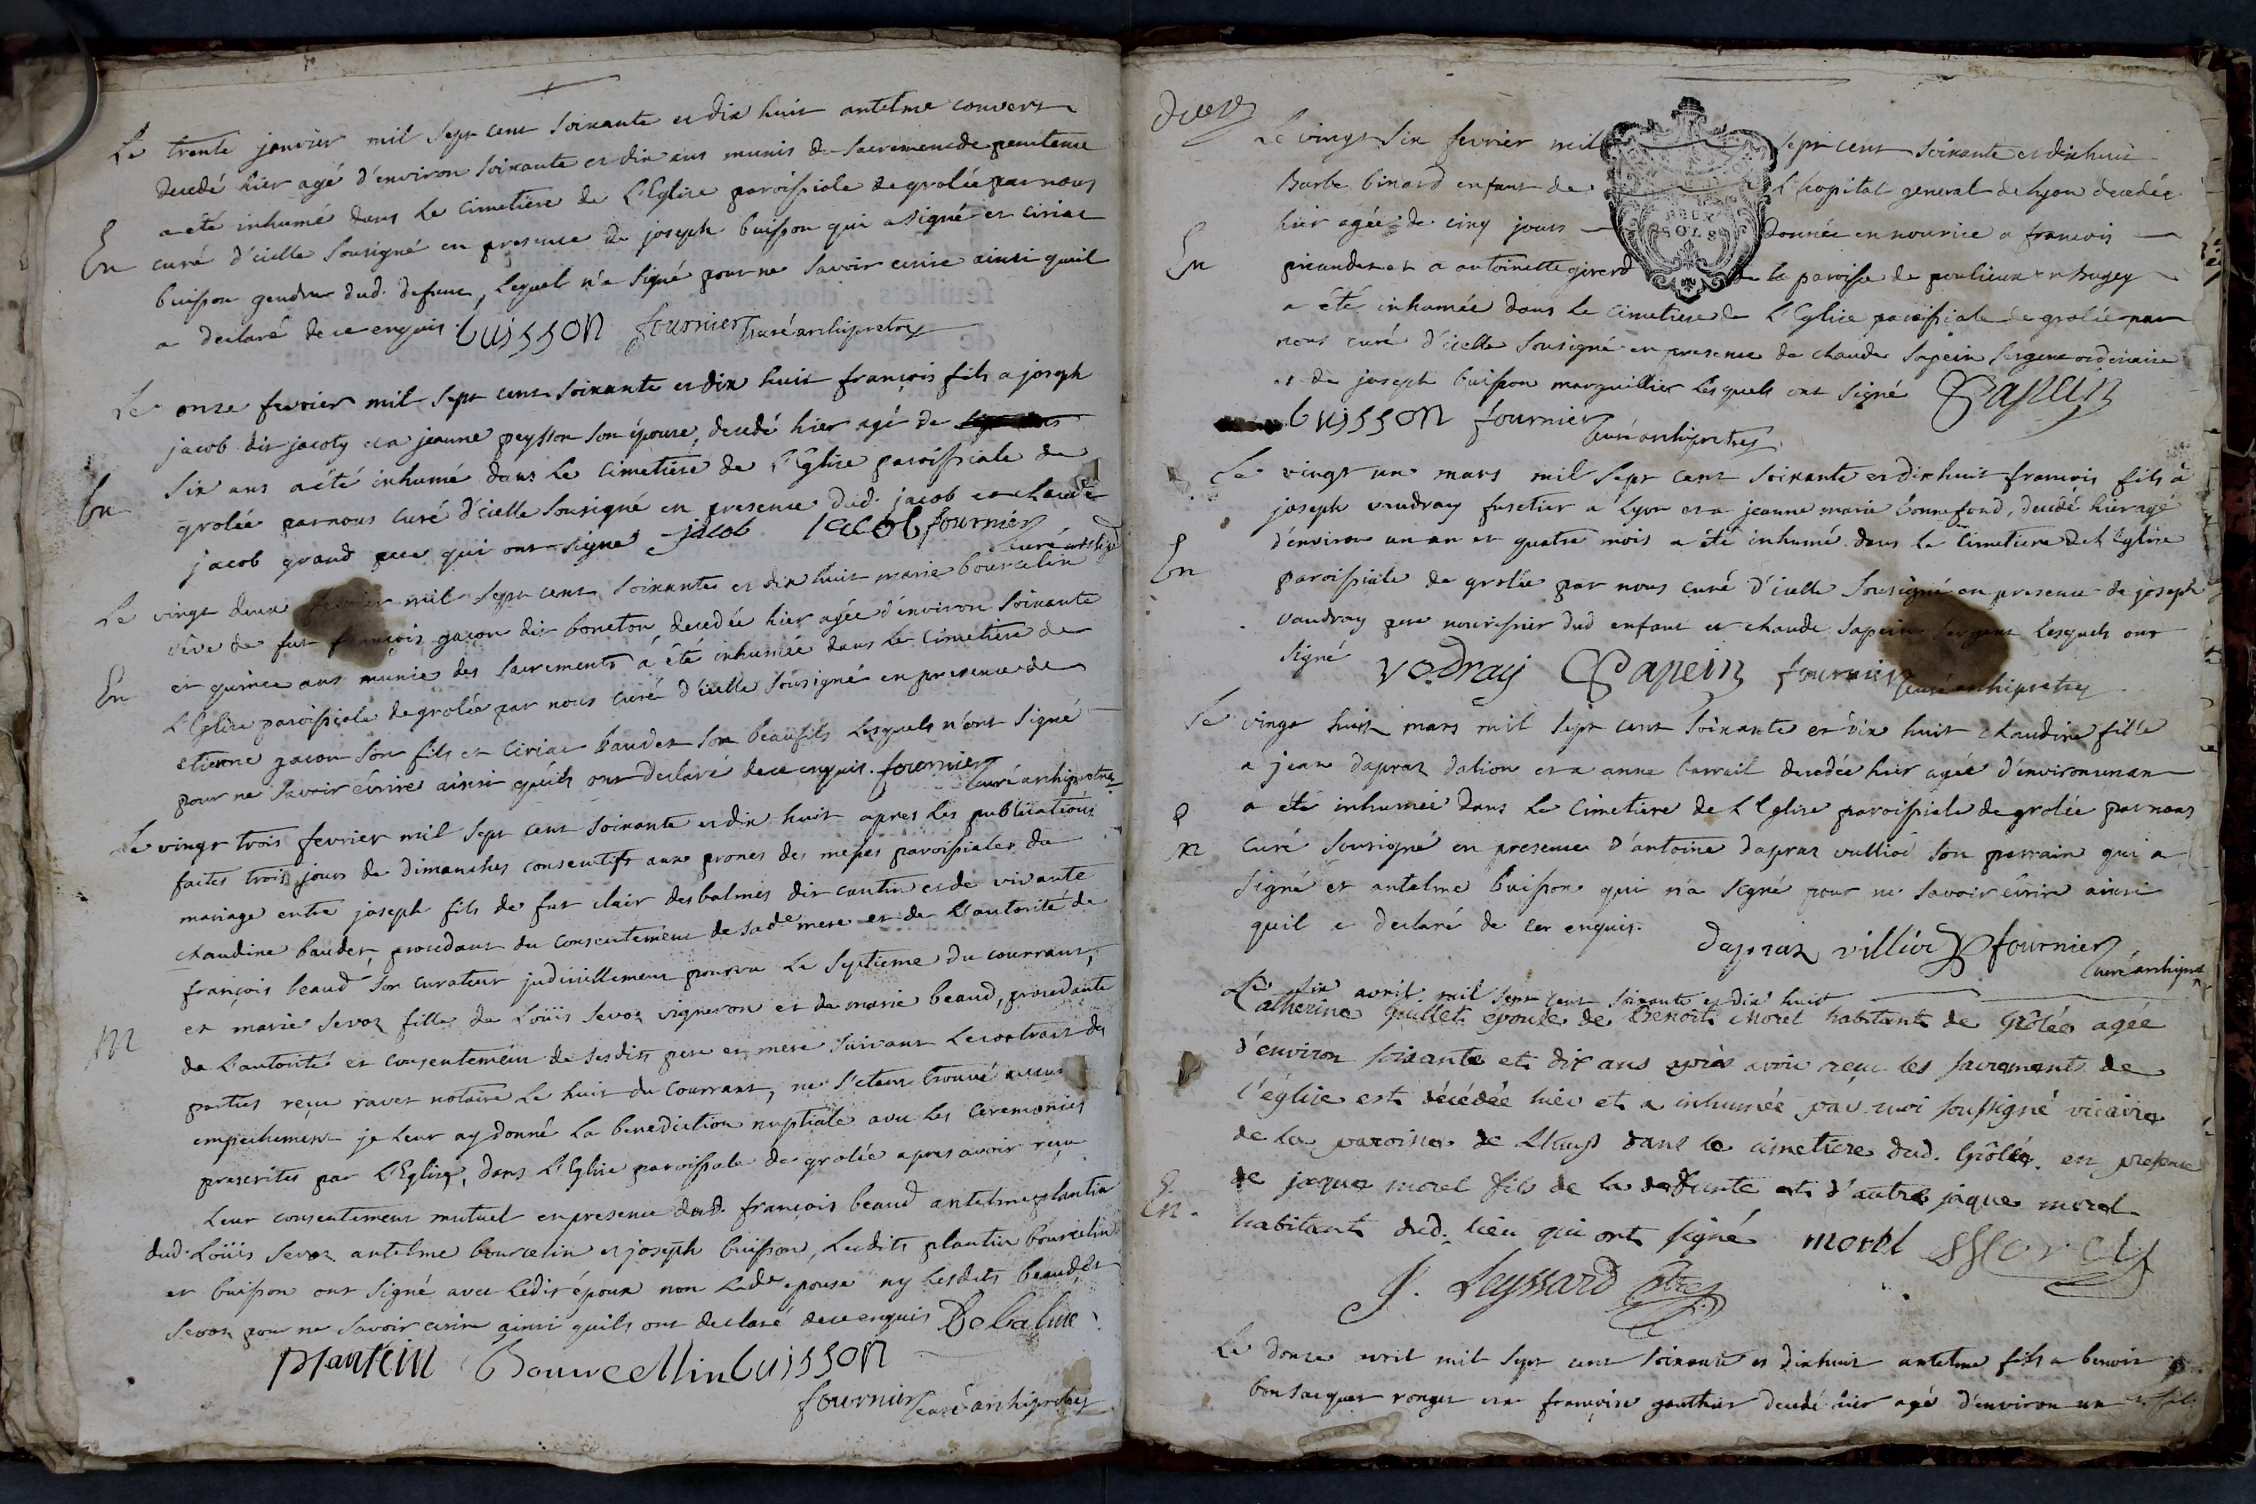 Le trente janvier mil sept cent soixante et dix huit antelme convert
decedé hier agé d'environ soixante et dix ans munis de sacremens de penitence
a été inhumé dans le cimetiere de l'Eglise paroissiale de grolée par nous
En
curé d'icelle sousigné en presence de joseph buisson qui a signé et ciriac
buisson gendre dud. defunt, lequel n'a signé pour ne savoir ecrire ainsi quil
a declaré de ce enquis. buisson fournier curé archipretre
Le onze fevrier mil sept cent soixante et dix huit françois fils a joseph
jacob dit jacoty et a jeanne peysson son épouse, decedé hier agé de
six ans a été inhumé dans le cimetiere de l'Eglise paroissiale de
En
grolée par nous curé d'icelle sousigné en presence dud. jacob et claude
jacob grand pere qui ont signé jacob jacob fournier
curé archip
Le vingt deux fevrier mil sept cent soixante et dix huit marie bourcelin
vêve de fut françois gacon dit boneton, decedée hier agée d'environ soixante
En
et quinze ans munie des sacrements a été inhumée dans le cimetiere de
l'Eglise paroissiale de grolée par nous curé d'icelle sousigné en presence de
etienne gacon son fils et ciriac baudet son beaufils lesquels n'ont signé
pour ne savoir écrire ainsi quéils ont declaré de ce enquis. fournier
curé archipretre
Le vingt trois fevrier mil sept cent soixante et dix huit apres les publications
faites trois jours de dimanches consecutifs aux prones des messes paroissiales du
mariage entre joseph fils de fut clair desbalmes dit cantin et de vivante
claudine baudet, procedant du consentement de sade mere et de l'autorité de
françois beaud son curateur judiciellement pourvu le septieme du courrant,
et marie sevoz fille de Loüis sevoz vigneron et de marie beaud, procedante
M
de l'autorité et consentement de sesdits pere et mere suivant le contract de
parties reçu ravet notaire le huit du courrant, ne s'etant trouvé aucun
empechement je leur ay donné la benediction nuptiale avec les ceremonies
prescrites par l'Eglise, dans l'Eglise paroissiale de grolée apres avoir reçu
leur consentement mutuel en presence dud. françois beaud antelme plantin
dud. Loüis sevoz antelme bourcelin et joseph buisson, lesdits plantin bourcelin
et buisson ont signé avec ledit époux non lade. epouse ny lesdits beaud et
sevoz pour ne savoir ecrire ainsi quils ont declaré de ce enquis Debalme
plantein Bourcellin buisson
fournier curé archipretre
Le vingt six fevrier mil sept cent soixante et dix huit
Barbe binard enfant de l'hopital general de lyon decedée
hier agée de cinq jours donnée en nourice a françois
DEUX
SOLS
En
et a antoinette girerd de la paroisse de poulieux en Bugey
a été inhumée dans le cimetiere de l'Eglise paroissiale de grolée par
nous curé d'icelle sousigné en presence de claude sapein sergent ordinaire
et de joseph buisson marguillier lesquels ont signé Sapein
buisson fournier
curé archipretre
Le vingt un mars mil sept cent soixante et dix huit françois fils à
joseph vaudray fusetier a Lyon et a jeanne marie bonnefond, decedé hier agé
d'environ un an et quatre mois a été inhumé dans le cimetiere de l'Eglise
En
paroissiale de grolée par nous curé d'icelle sousigné en presence de joseph
vaudray pere nourissier dud enfant et claude sapein sergent lesquels ont
signé vodray Sapein fournier
curé archipretre
Le vingt huit mars mil sept cent soixante et dix huit claudine fille
a jean dapraz dalion et a anne barrail decedée hier agée d'environ un an
a été inhumée dans le cimetiere de l'Eglise paroissiale de grolée par nous
En
curé sousigné en presence d'antoine dapraz vullioi son parrain qui a
signé et antelme buisson qui n'a signé pour ne savoir écrire ainsi
quil a declaré de cet enquis.
dapraz villioz fournier
curé archipr
Le six avril mil sept cent soixante et dix huit
Catherine Guillet epouse de Benoit Morel habitante de Grôlée agée
d'environ soixante et dix ans après avoir reçu les sacrements de
l'église est décédée hier et a inhumée par moi soussigné vicaire
de la paroisse de Lhuys dans le cimetiere dud. Grôlée en presence
En.
de jaque morel fils de la deffunte et d'autre jaque morel
habitant dud. lieu qui ont signé morel Morel
J. Leyssard
Le douze avril mil sept cent soixante et dix huit antelme fils a benoit
bon jacquet ronget et a françoise gauthier decedé hier agé d'environ un